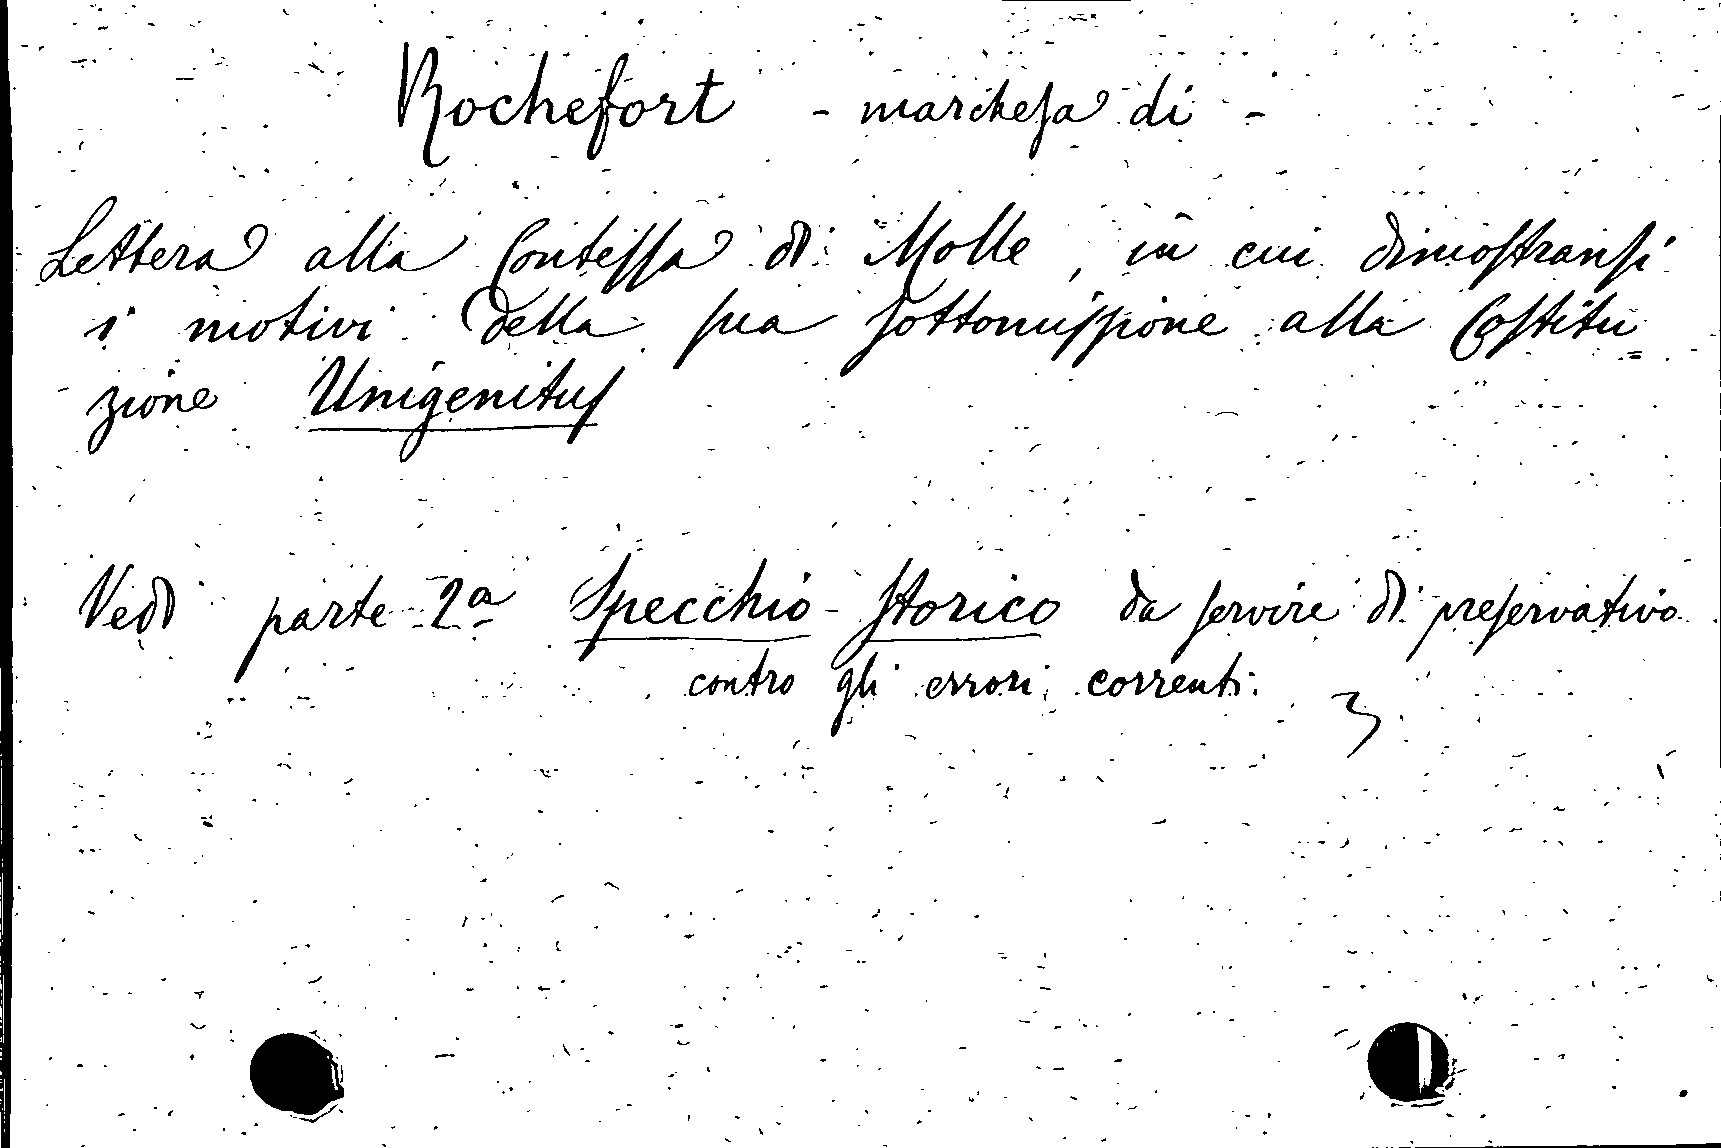 Rochefort - marchesa di -
Lettera alla Contessa di Molle, in cui dimostransi
i motivi della sua sottomissione alla Costitu=
zione Unigenitus
Vedi parte 2a Specchio storico da servire di preservativo
contro gli errori correnti.